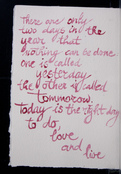 There are only
two days in the
year that
nothing can be done.
one is called
yesterday
the other is called
tommorow.
Today is the right day
to do,
love
and live